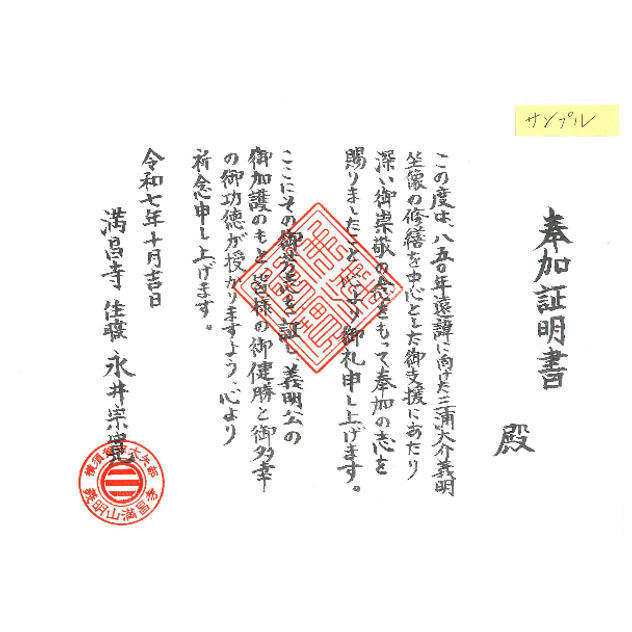 サンプル
奉加証明書
殿
この度は、八五〇年遠諱に向けた三浦大介義明
坐像の修繕を中心とした御支援にあたり
深い御崇敬の念をもって奉加の志を
賜りましたこと、心より御礼申し上げます。
ここにその御芳志を証し、義明公の
御加護のもと、皆様の御健勝と御多幸
の御功徳が授かりますよう、心より
祈念申し上げます。
令和七年十月吉日
満昌寺 住職 永井宗寛
横須賀市大矢部
義明山満昌寺